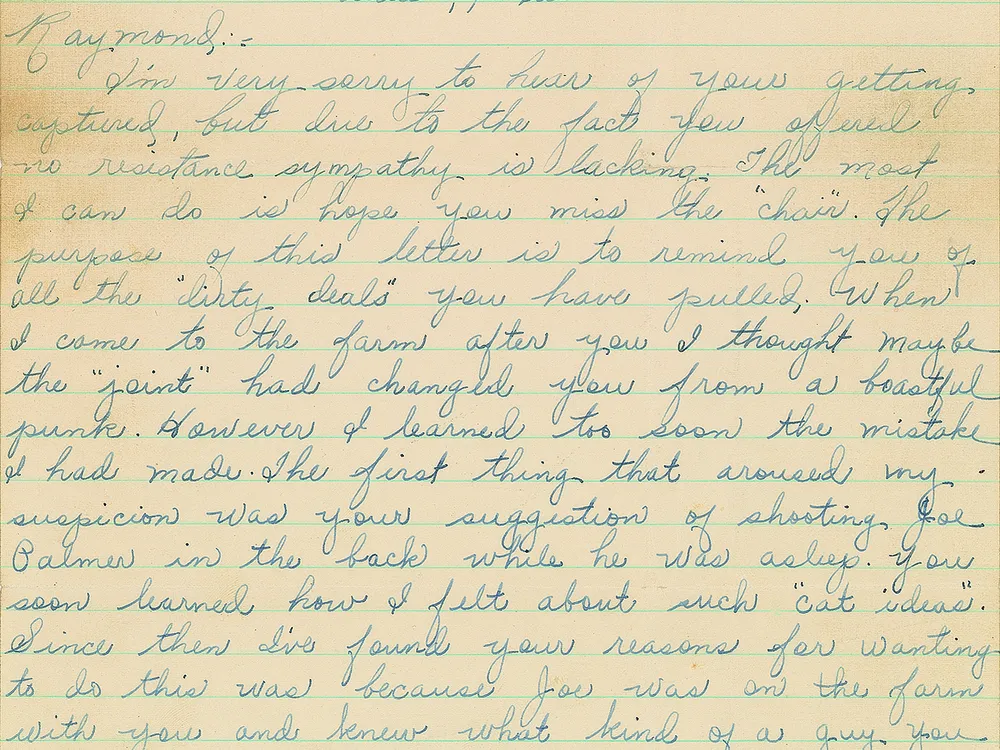 Raymond:-
I'm very sorry to hear of your getting
captured, but due to the fact you offered
no resistance sympathy is lacking. The most
I can do is hope you miss the "chair". The
purpose of this letter is to remind you of
all the "dirty deals" you have pulled. When
I came to the farm after you I thought maybe
the "joint" had changed you from a boastful
punk. However I learned too soon the mistake
I had made. The first thing that aroused my
suspicion was your suggestion of shooting Joe
Palmer in the back while he was asleep. You
soon learned how I felt about such "cat ideas".
Since then I've found your reasons for wanting
to do this was because Joe was on the farm
with you and knew what kind of a guy you